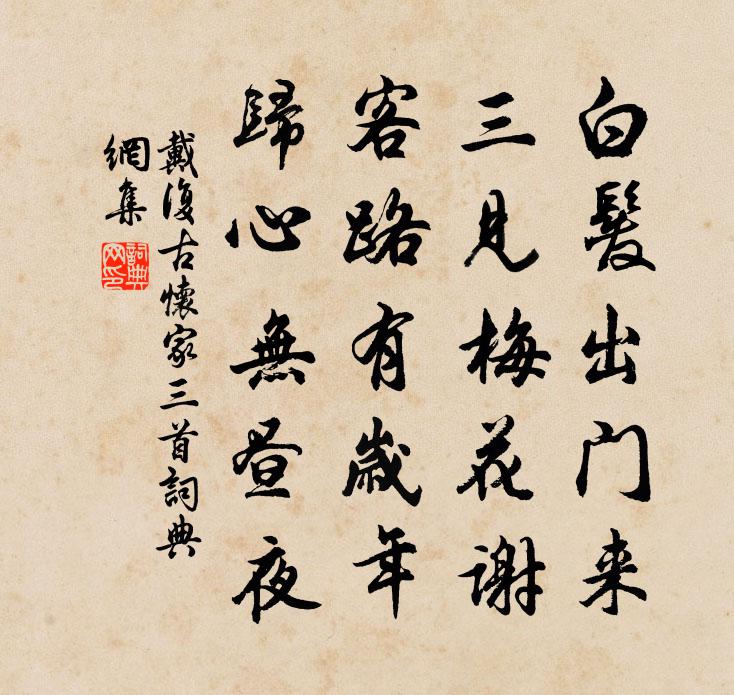 白髮出门来
三見梅花謝
客路有歲年
歸心無昼夜
戴復古懷家三首詞典
網集
詞典
网印